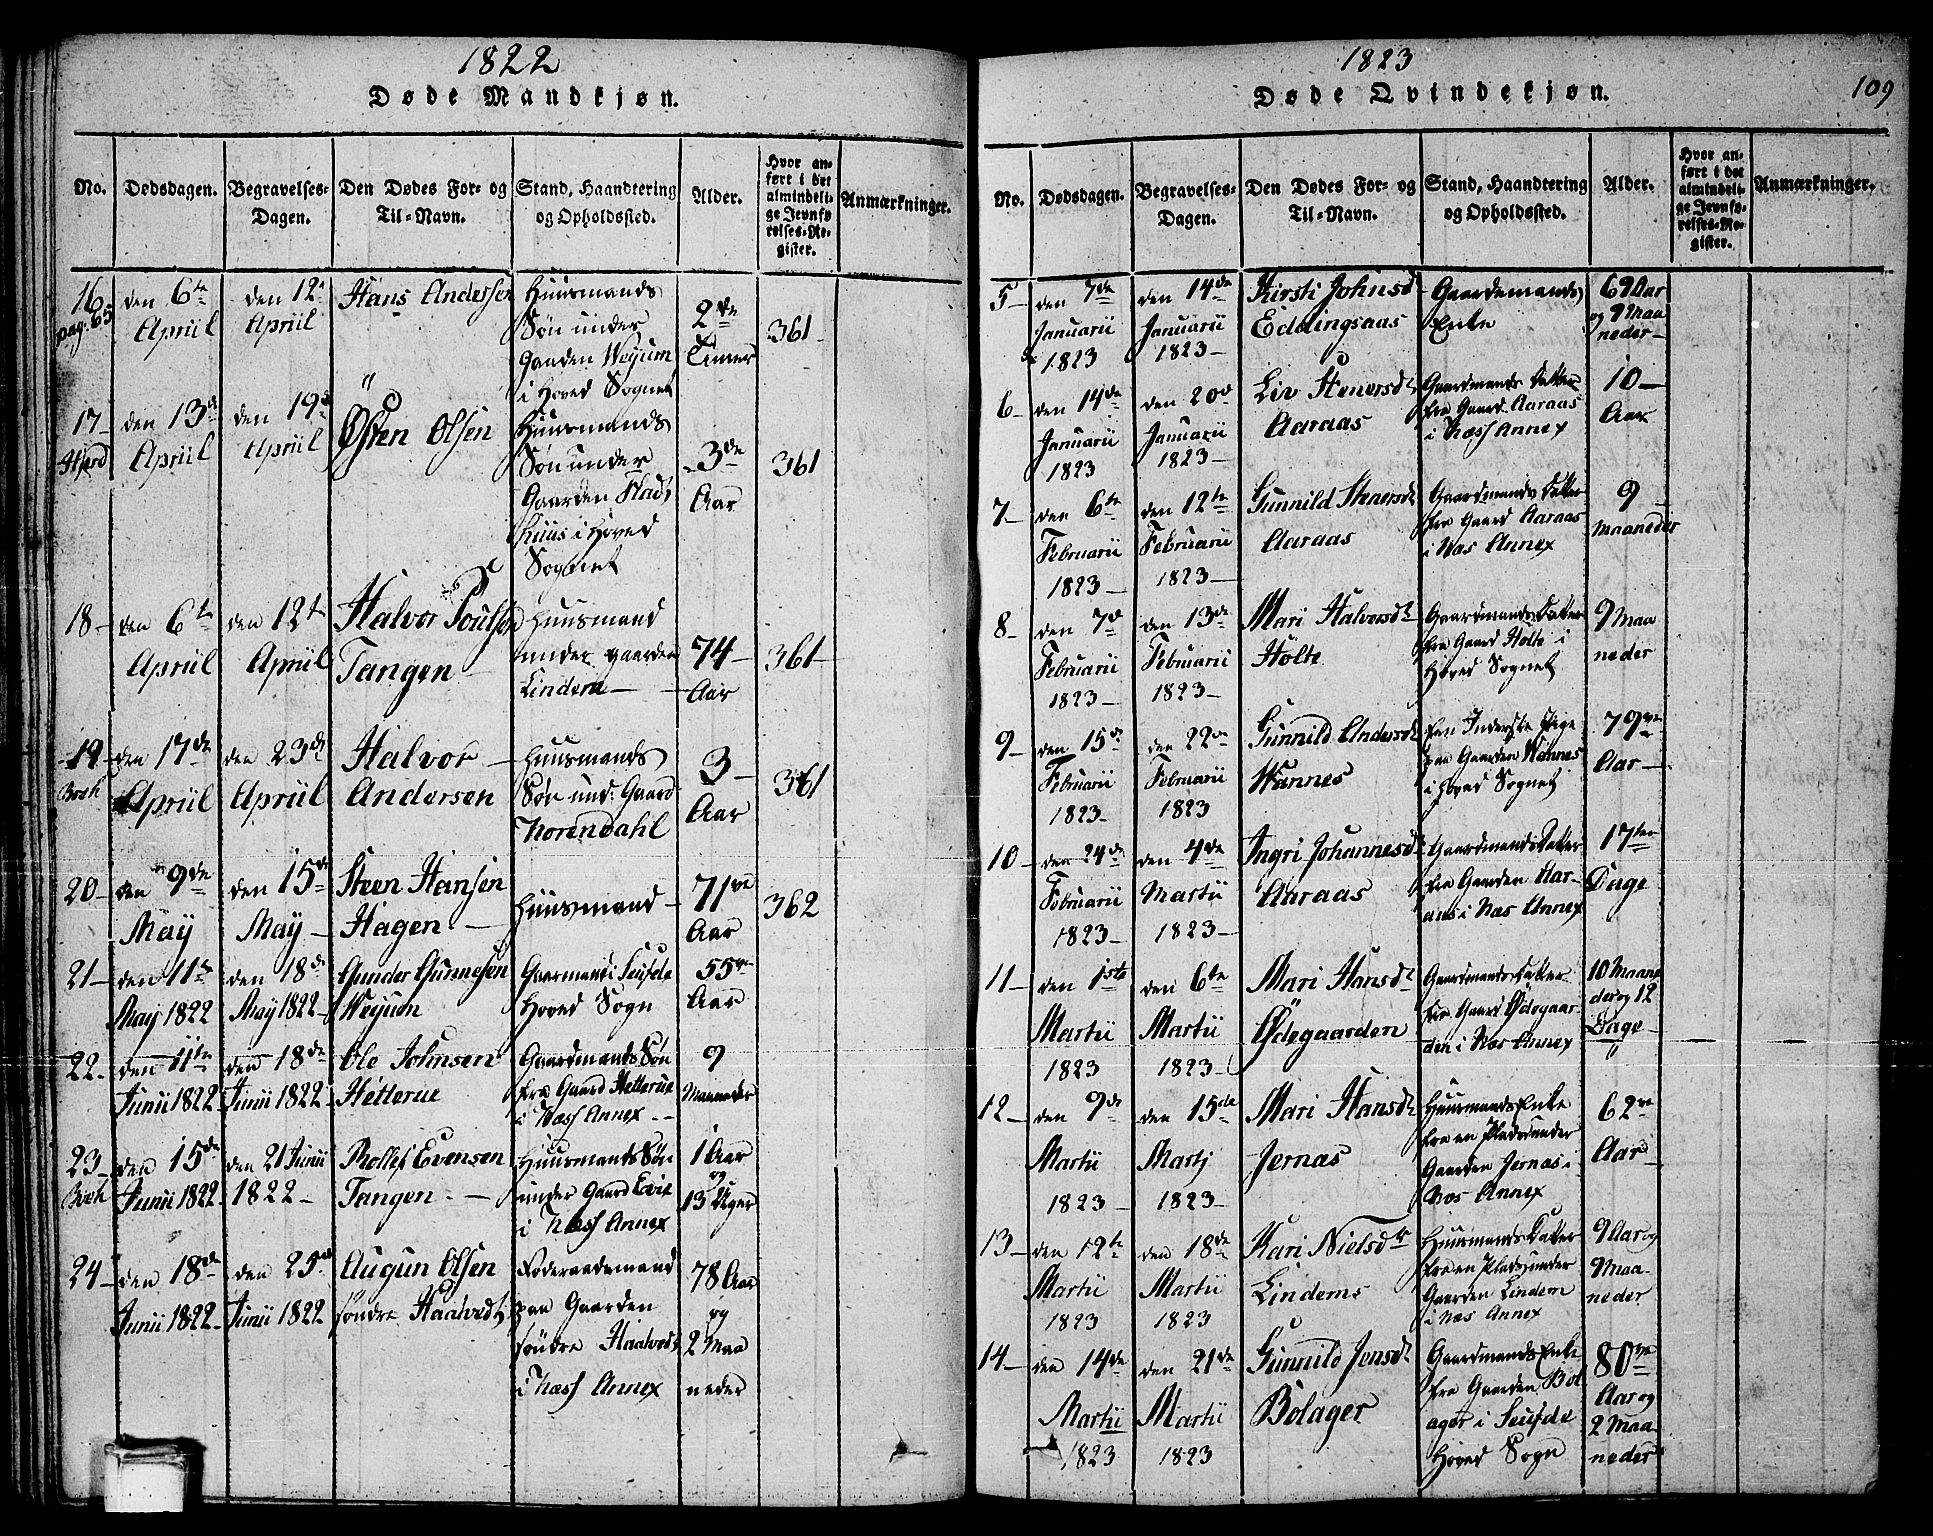 1822
Døde Mandkjøn.
No.
Dødsdagen.
Begravelses-
Dagen.
Den Dødes For- og
Til-Navn.
Stand, Haandtering
og Opholdssted.
Alder.
Hvor an-
ført i det
almindeli-
ge Jevnfø-
relses-Re-
gister.
Anmærkninger.
16
pag. 65
den 6te
Apriil
den 12t
Apriil
Hans Andersen
Huusmands
Søn under
Gaarden Weyum
i Hoved Sognet
2de
Timer
361
17
den 13de
Apriil
den 19d
Apriil
Østen Olsen
Huusmands
Søn under
Gaarden Flad
huus i Hoved
Sognet
3de
Aar
361
18
den 6te
Apriil
den 12t
Apriil
Halvor Poulsen
Tangen
Huusmand
under gaarden
Lindem
74
Aar
361
19
den 17de
Apriil
den 23d
Apriil
Halvor
Andersen
Huusmands
Søn und: Gaard
Norendahl
3
Aar
361
20
den 9de
May
den 15de
May
Steen Hansen
Hagen
Huusmand
71ve
Aar
362
21
den 11te
May 1822
den 18de
May 1822
Gunder Gunnesen
Weyum
Gaarmand i Seufde
Hoved Sogn
55ve
Aar
22
den 11te
Junii 1822
den 18de
Junii 1822
Ole Johnsen
Hetterue
Gaardmands Søn
fra Gaard Hetterue
i Næss Annex
9
Maaneder
23
den 15de
Junii 1822
den 21 Junii
1822
Rollef Evensen
Tangen
Huusmands Søn
under Gaard Evje
i Næss Annex
1 Aar
og
13 Uger
24
den 18de
Junii 1822
den 25d
Junii 1822
Augun Olsen
søndre Haatvedt
Føderaadsmand
paa Gaarden
søndre Haatvedt
i Næss Annex
78 Aar
og
2 Maa
neder
1823
Døde Qvindekjøn.
109
No.
Dødsdagen.
Begravelses-
Dagen.
Den Dødes For- og
Til-Navn.
Stand, Haandtering
og Opholdssted.
Alder.
Hvor an-
ført i det
almindeli-
ge Jevnfø-
relses-Re-
gister.
Anmærkninger.
5
den 7de
Januarii
1823
den 14de
Januarii
1823
Kirsti Johnsd
Eddingsaas
Gaardemands
Enke
69 Aar
og 9 Maa
neder
6
den 14de
Januarii
1823
den 20d
Januarii
1823
Liv Stenersdt
Aaraas
Gaardmands Datter
fra Gaard Aaraas
i Næss Annex
10
Aar
7
den 6te
Februarii
1823
den 12te
Februarii
1823
Gunnild Stenersdt
Aaraas
Gaardmands Datter
fra Gaard Aaraas
i Næs Annex
9
Maaneder
8
den 7d
Februarii
1823
den 13de
Februarii
1823
Mari Halvorsdt
Holte
Gaardmands Datter
fra Gaard Holte i
Hoved Sognet
9 Maa
neder
9
den 15d
Februarii
1823
den 22de
Februarii
1823
Gunnild Andersdt
Wannes
Een Inderste Pige
paa Gaarden Wannes
i Hoved Sognet
79ve
Aar
10
den 24de
Februarii
1823
den 4de
Martii
1823
Ingri Johannesd
Aaraas
Gaardmands Datter
fra Gaarden Aar-
aas i Næs Annex
17ten
Dage
11
den 1ste
Martii
1823
den 6te
Martii
1823
Mari Hansdt
Ødegaarden
Gaardmands Datter
fra Gaard Ødegaar
den i Næs Annex
10 Maane
der og 12
Dage
12
den 9de
Martii
1823
den 15de
Martj
1823
Mari Hansdt
Jernæs
Huusmands Enke
fra en Plads under
Gaarden Jernæs i
Næs Annex
62ve
Aar
13
den 12te
Martii
1823
den 18de
Martii
1823
Kari Nielsdtr
Lindems
Huusmands Datter
fra en Plads under
Gaarden Lindem
i Næs Annex
9 Aar og
9 Maa-
neder
14
den 14de
Martii
1823
den 21de
Martii
1823
Gunnild Jensdt
Bolager
Gaardmands Enke
fra Gaarden Bol
ager i Seufde
Hoved Sogn
80ve
Aar og
2 Maa
neder